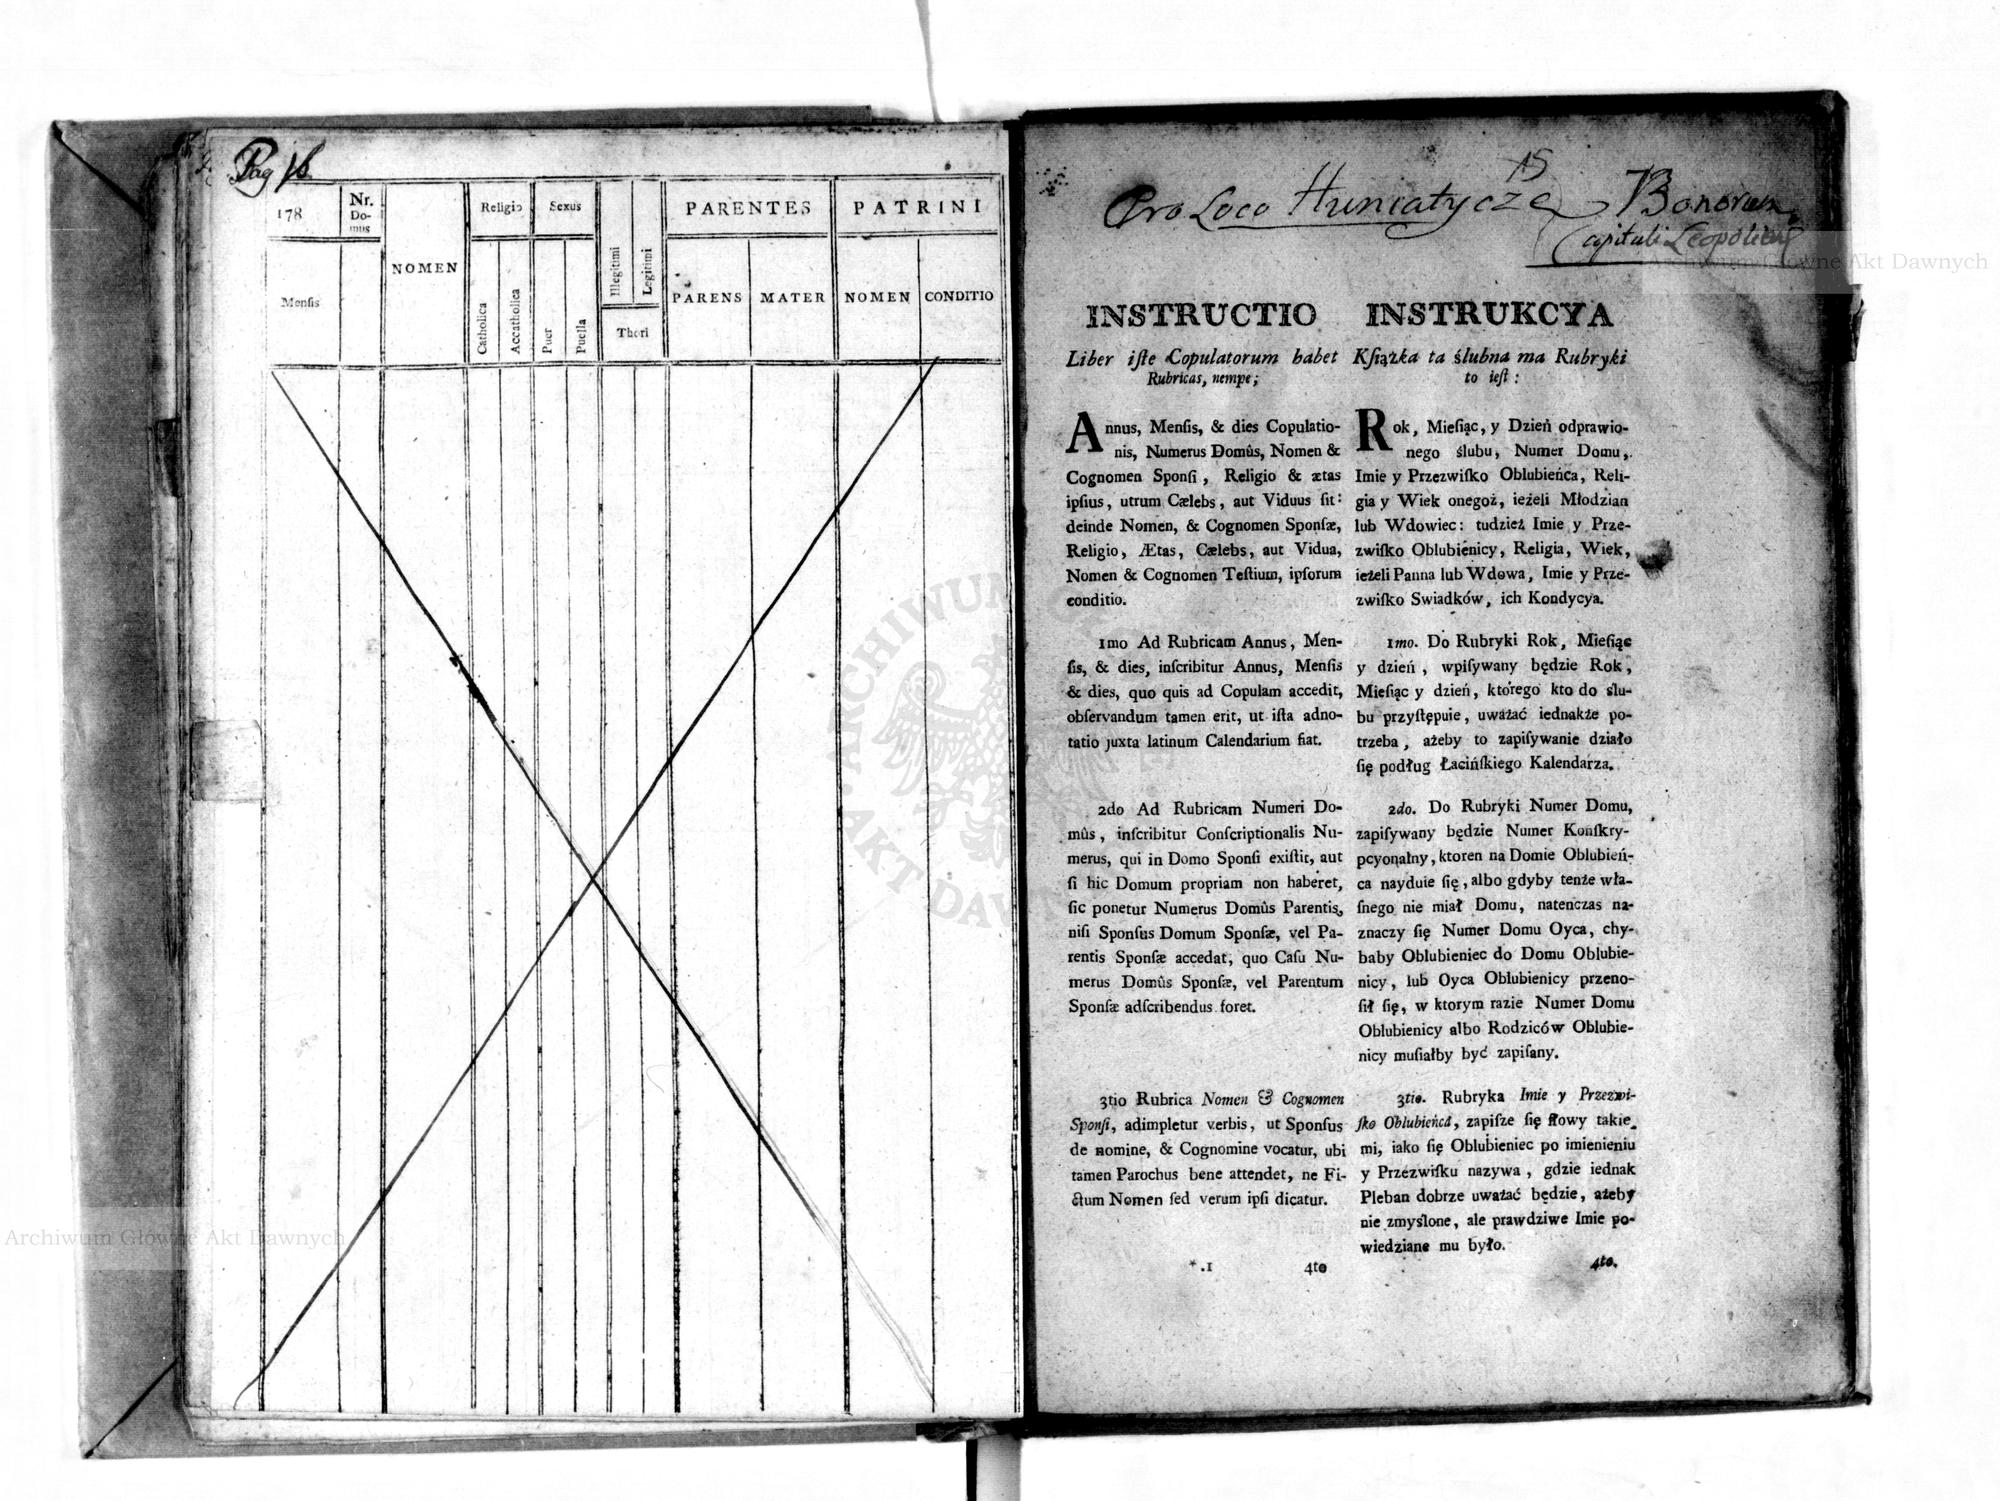 Pag
178
Nr.
Do-
mus
NOMEN
Religio
Sexus
Illegitimi
Legitimi
PARENTES
PATRINI
Mensis
Catholica
Accatholica
Puer
Puella
Thori
PARENS
MATER
NOMEN
CONDITIO
15
Pro Loco Huniatycze Bonorum
Capituli
Archiwum Główne Akt Dawnych
INSTRUCTIO
Liber iſte Copulatorum habet
Rubricas, nempe;
Annus, Menſis, & dies Copulatio-
nis, Numerus Domûs, Nomen &
Cognomen Sponſi, Religio & ætas
ipſius, utrum Cælebs, aut Viduus ſit:
deinde Nomen, & Cognomen Sponſæ,
Religio, Ætas, Cælebs, aut Vidua,
Nomen & Cognomen Teſtium, ipſorum
conditio.
1mo Ad Rubricam Annus, Men-
ſis, & dies, inſcribitur Annus, Menſis
& dies, quo quis ad Copulam accedit,
obſervandum tamen erit, ut iſta adno-
tatio juxta latinum Calendarium fiat.
2do Ad Rubricam Numeri Do-
mûs, inſcribitur Conſcriptionalis Nu-
merus, qui in Domo Sponſi exiſtit, aut
ſi hic Domum propriam non haberet,
ſic ponetur Numerus Domûs Parentis,
niſi Sponſus Domum Sponſæ, vel Pa-
rentis Sponſæ accedat, quo Caſu Nu-
merus Domûs Sponſæ, vel Parentum
Sponſæ adſcribendus foret.
3tio Rubrica Nomen & Cognomen
Sponſi, adimpletur verbis, ut Sponſus
de nomine, & Cognomine vocatur, ubi
tamen Parochus bene attendet, ne Fi-
ctum Nomen ſed verum ipſi dicatur.
*.1
4to
INSTRUKCYA
Kſiążka ta ślubna ma Rubryki
to ieſt:
Rok, Mieſiąc, y Dzień odprawio-
nego ślubu, Numer Domu,
Imie y Przezwiſko Oblubieńca, Reli-
gia y Wiek onegoż, ieżeli Młodzian
lub Wdowiec: tudzież Imie y Prze-
zwiſko Oblubienicy, Religia, Wiek,
ieżeli Panna lub Wdowa, Imie y Prze-
zwiſko Swiadków, ich Kondycya.
1mo. Do Rubryki Rok, Mieſiąc
y dzień, wpiſywany będzie Rok,
Mieſiąc y dzień, ktorego kto do ślu-
bu przyſtępuie, uważać iednakże po-
trzeba, ażeby to zapiſywanie działo
ſię podług Łacińſkiego Kalendarza.
2do. Do Rubryki Numer Domu,
zapiſywany będzie Numer Konſkry-
pcyonalny, ktoren na Domie Oblubień-
ca nayduie ſię, albo gdyby tenże wła-
ſnego nie miał Domu, natenczas na-
znaczy ſię Numer Domu Oyca, chy-
baby Oblubieniec do Domu Oblubie-
nicy, lub Oyca Oblubienicy przeno-
ſił ſię, w ktorym razie Numer Domu
Oblubienicy albo Rodziców Oblubie-
nicy muſiałby być zapiſany.
3tio. Rubryka Imie y Przezwi-
ſko Oblubieńca, zapiſze ſię ſłowy takie-
mi, iako ſię Oblubieniec po imienieniu
y Przezwiſku nazywa, gdzie iednak
Pleban dobrze uważać będzie, ażeby
nie zmyślone, ale prawdziwe Imie po-
wiedziane mu było.
4to.
ARCHIWUM
AKT DAW
Archiwum Główne Akt Dawnych